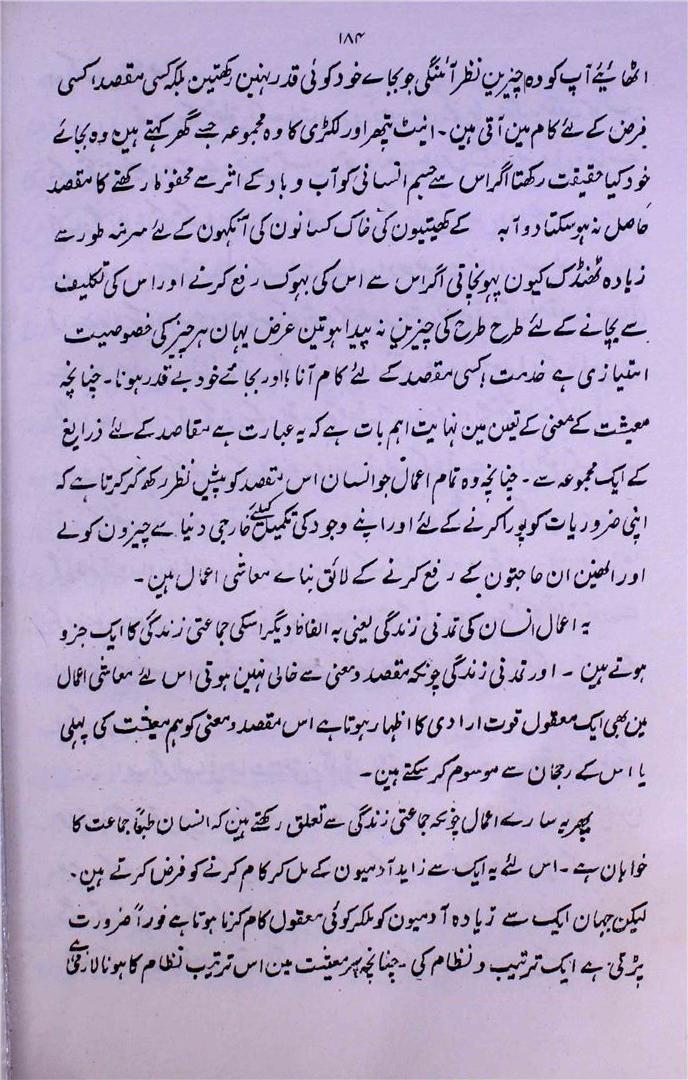 ۱۸۴
اٹھائیے آپ کو وہ چیزین نظر آئنگی جو بجاے خود کوئی قدر نہین رکھتین بلکہ کسی مقصد، کسی
غرض کے لئے کام مین آتی ہین۔ انیٹ پتھر اور لکڑی کا وہ مجموعہ جسے گھر کہتے ہین وہ بجائے
خود کیا حقیقت رکھتا اگر اس سے جسم انسانی کو آب و باد کے اثر سے محفوظ رکھنے کا مقصد
حاصل نہ ہو سکتا دوآبہ کے کھیتیون کی خاک کسانون کی آنکہون کے لئے سرمہ طور سے
زیادہ ٹھنڈک کیون پہونچاتی اگر اس سے اس کی بہوک رفع کرنے اور اس کی تکلیف
سے بچانے کے لئے طرح طرح کی چیزین نہ پیدا ہوتین غرض یہان ہر چیز کی خصوصیت
امتیازی ہے خدمت، کسی مقصد کے لئے کام آنا، اور بجائے خود بے قدر ہونا۔ چنانچہ
معیشت کے معنی کے تعین مین نہایت اہم بات ہے کہ یہ عبارت ہے مقاصد کے لئے ذرایع
کے ایک مجموعہ سے۔ چنانچہ وہ تمام اعمال جو انسان اس مقصد کو پیش نظر رکھ کر کرتا ہے کہ
اپنی ضروریات کو پورا کرنے کے لئے اور اپنے وجود کی تکمیل کیلئے خارجی دنیا سے چیزون کو لے
اور انھین ان حاجتون کے رفع کرنے کے لائق بناے معاشی اعمال ہین۔
یہ اعمال انسان کی تمدنی زندگی یعنی بہ الفاظ دیگر اسکی جماعتی زندگی کا ایک جزو
ہوتے ہین ۔ اور تمدنی زندگی چونکہ مقصد و معنی سے خالی نہین ہوتی اس لئے معاشی اعمال
مین بھی ایک معقول قوت ارادی کا اظہار ہوتا ہے اس مقصد و معنی کو ہم معیشت کی پہلی
یا اس کے رجحان سے موسوم کر سکتے ہین۔
پھر یہ سارے اعمال چونکہ جماعتی زندگی سے تعلق رکھتے ہین کہ انسان طبعاً جماعت کا
خواہان ہے۔ اس لئے یہ ایک سے زاید آدمیون کے مل کر کام کرنے کو فرض کرتے ہین۔
لیکن جہان ایک سے زیادہ آدمیون کو ملکر کوئی معقول کام کرنا ہوتا ہے فوراً ضرورت
پڑتی ہے ایک ترتیب و نظام کی۔ چنانچہ ہر معیشت مین اس ترتیب نظام کا ہونا لازمی ہے